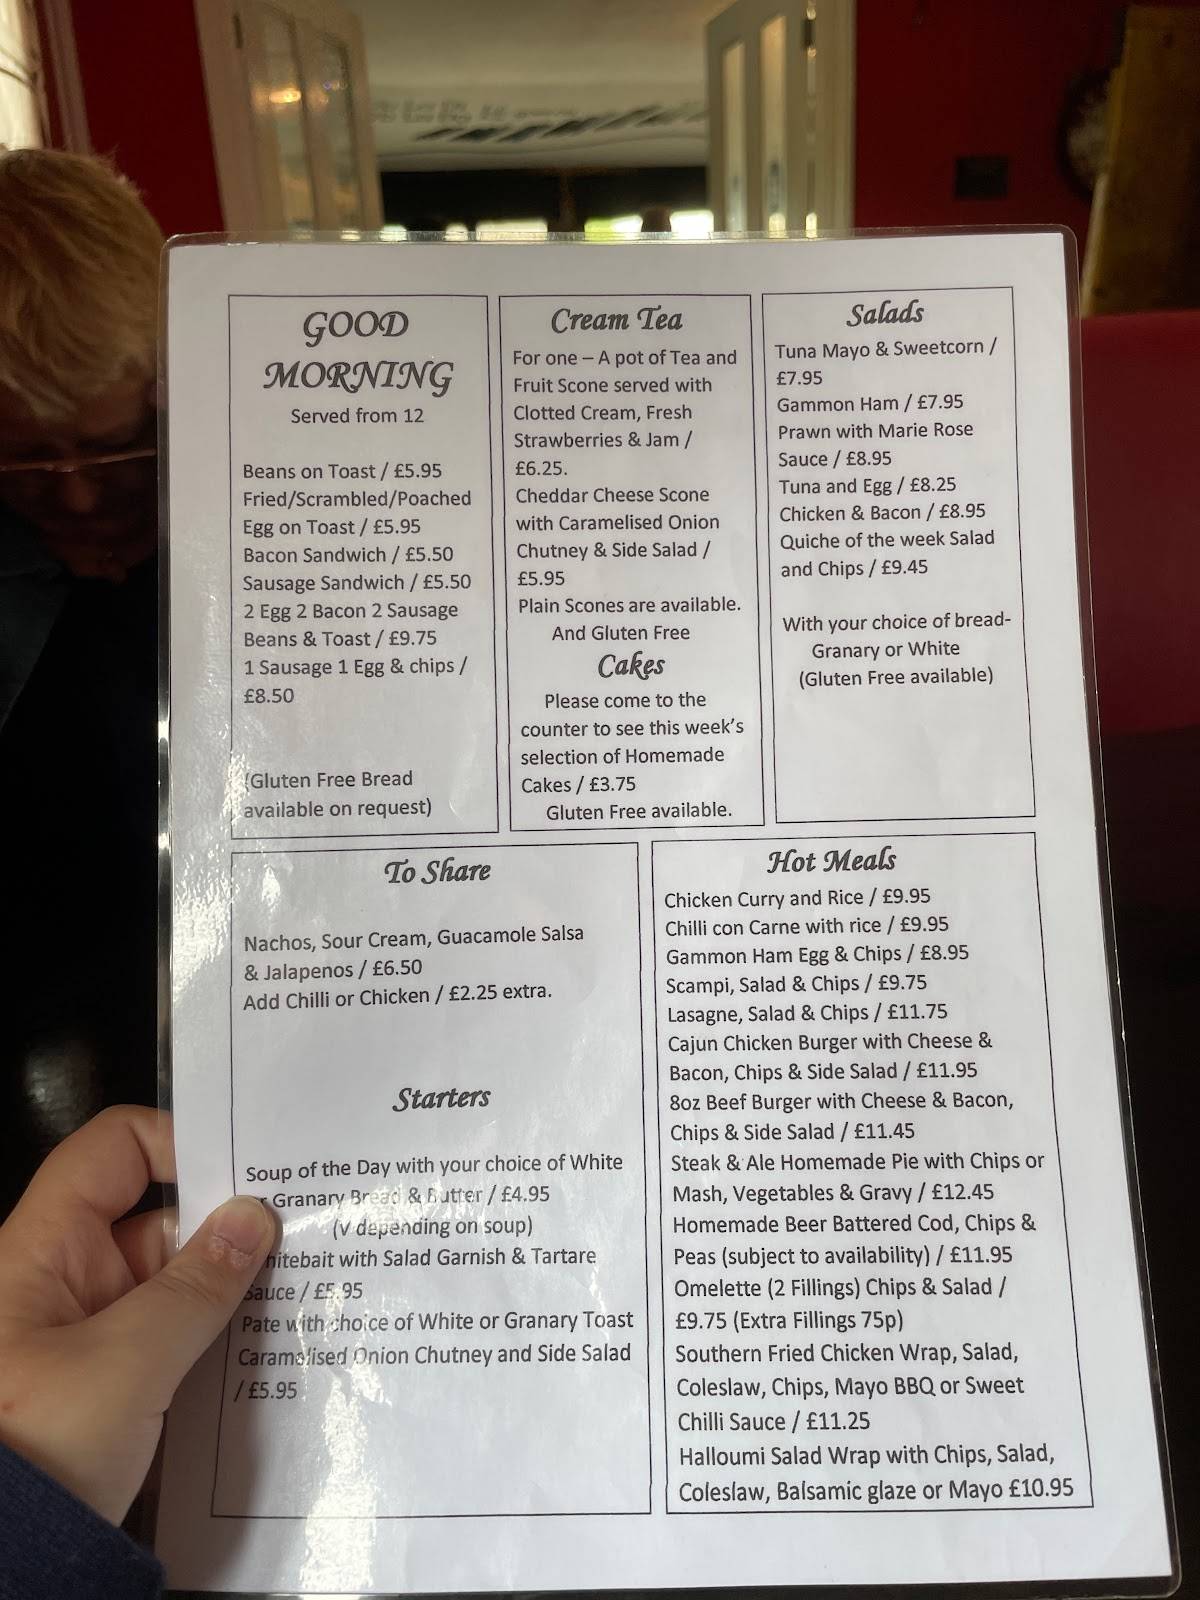 GOOD
MORNING
Served from 12
Beans on Toast / £5.95
Fried/Scrambled/Poached
Egg on Toast / £5.95
Bacon Sandwich / £5.50
Sausage Sandwich / £5.50
2 Egg 2 Bacon 2 Sausage
Beans & Toast / £9.75
1 Sausage 1 Egg & chips /
£8.50
(Gluten Free Bread
available on request)
Cream Tea
For one – A pot of Tea and
Fruit Scone served with
Clotted Cream, Fresh
Strawberries & Jam /
£6.25.
Cheddar Cheese Scone
with Caramelised Onion
Chutney & Side Salad /
£5.95
Plain Scones are available.
And Gluten Free
Cakes
Please come to the
counter to see this week's
selection of Homemade
Cakes / £3.75
Gluten Free available.
Salads
Tuna Mayo & Sweetcorn /
£7.95
Gammon Ham / £7.95
Prawn with Marie Rose
Sauce / £8.95
Tuna and Egg / £8.25
Chicken & Bacon / £8.95
Quiche of the week Salad
and Chips / £9.45
With your choice of bread-
Granary or White
(Gluten Free available)
To Share
Nachos, Sour Cream, Guacamole Salsa
& Jalapenos / £6.50
Add Chilli or Chicken / £2.25 extra.
Starters
Soup of the Day with your choice of White
r Granary Bread & Butter / £4.95
(v depending on soup)
hitebait with Salad Garnish & Tartare
Sauce / £5.95
Pate with choice of White or Granary Toast
Caramelised Onion Chutney and Side Salad
/ £5.95
Hot Meals
Chicken Curry and Rice / £9.95
Chilli con Carne with rice / £9.95
Gammon Ham Egg & Chips / £8.95
Scampi, Salad & Chips / £9.75
Lasagne, Salad & Chips / £11.75
Cajun Chicken Burger with Cheese &
Bacon, Chips & Side Salad / £11.95
8oz Beef Burger with Cheese & Bacon,
Chips & Side Salad / £11.45
Steak & Ale Homemade Pie with Chips or
Mash, Vegetables & Gravy / £12.45
Homemade Beer Battered Cod, Chips &
Peas (subject to availability) / £11.95
Omelette (2 Fillings) Chips & Salad /
£9.75 (Extra Fillings 75p)
Southern Fried Chicken Wrap, Salad,
Coleslaw, Chips, Mayo BBQ or Sweet
Chilli Sauce / £11.25
Halloumi Salad Wrap with Chips, Salad,
Coleslaw, Balsamic glaze or Mayo £10.95